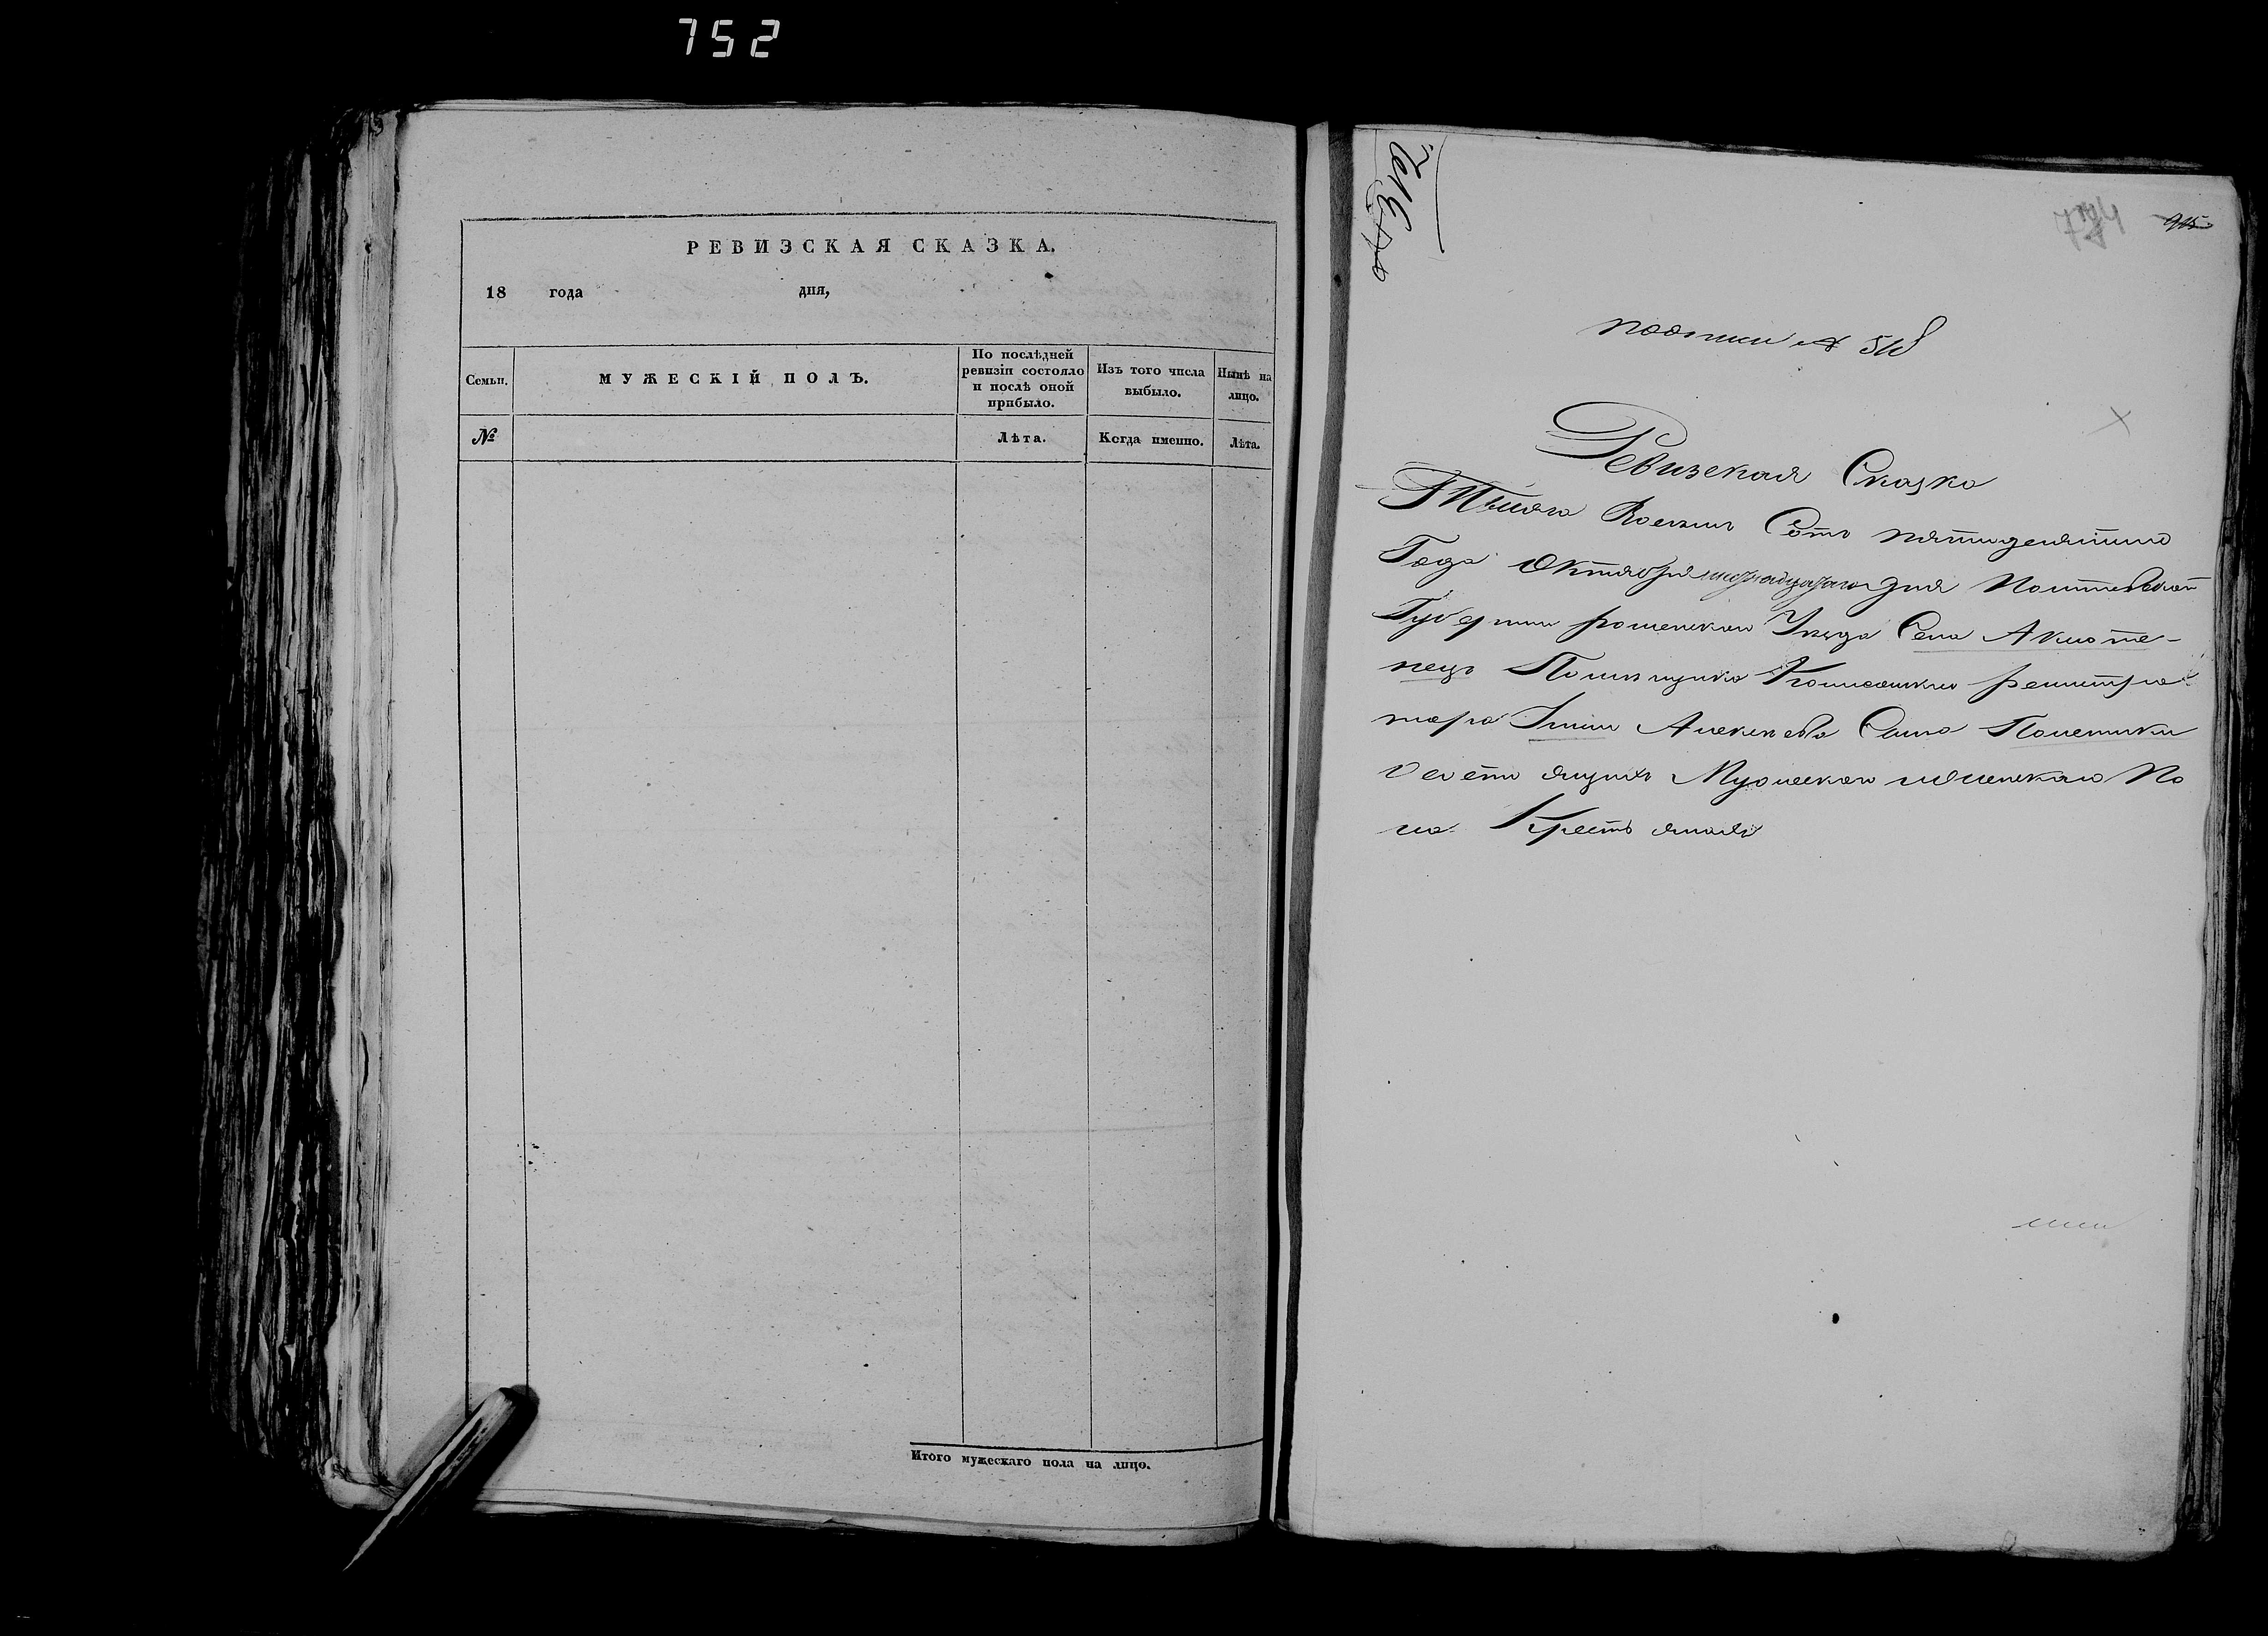 752
РЕВИЗСКАЯ СКАЗКА.
18 года дня,
Семьи.
МУЖЕСКІЙ ПОЛЪ.
По послѣдней
ревизіи состояло
и послѣ оной
прибыло.
Изъ того числа
выбыло.
Нынѣ на
лицо.
№
Лѣта.
Когда именно.
Лѣта.
Итого мужескаго пола на лицо.
Ревизская Сказка
Тысяча Восемь Сотъ пятидесятаго
Года Октября дня Полтавской
Губерніи Роменскаго Уезда Села Аксюти-
нецъ Помѣщика Колежскаго регистра-
тора Алексѣева Сына Полетики
о состоящихъ Мужеска и женскаго По
ла Крестьянахъ